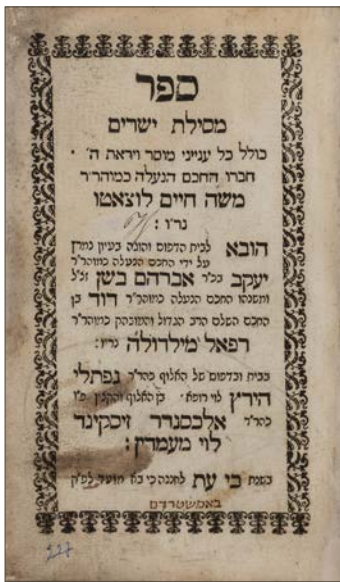 ספר
מסילת ישרים
כולל כל ענייני מוסר ויראת ה׳ ·
חברו החכם הנעלה כמוהר״ר
משה חיים לוצאטו
נר״ו :
הובא לבית הדפוס והוגה בעיון נמרץ
על ידי החכם הנעלה כמוהר״ר
יעקב בכ״ר אברהם בשן זצ״ל
ומשנהו החכם הנעלה כמוהר״ר דוד בן
החכם השלם הרב הגדול והמובהק כמוהר״ר
רפאל מילדולה נר״ו :
בבית ובדפוס של האלוף כהר״ר נפתלי
הירץ לוי רופא · בן האלוף והקצין פ״ו
כהר״ר אלכסנדר זיסקינד
לוי מעמדין :
בשנת כי עת לחננה כי בא מועד לפ״ק
באמשטרדם
227